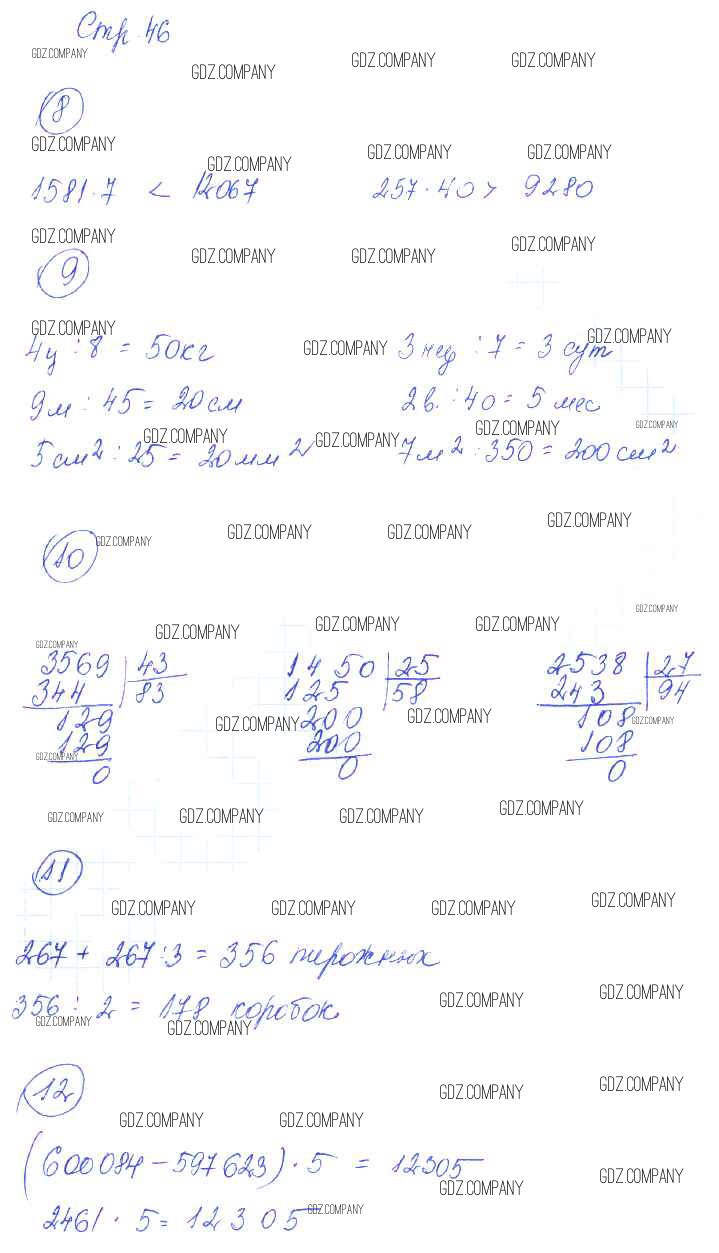 Стр. 46
GDZ.COMPANY GDZ.COMPANY GDZ.COMPANY GDZ.COMPANY
8
GDZ.COMPANY GDZ.COMPANY GDZ.COMPANY GDZ.COMPANY
1581·7 < 12067 257·40 > 9280
GDZ.COMPANY GDZ.COMPANY GDZ.COMPANY GDZ.COMPANY
9
GDZ.COMPANY GDZ.COMPANY GDZ.COMPANY
4ц : 8 = 50кг 3 нед : 7 = 3 сут
9м : 45 = 20см 2в. : 40 = 5 мес
GDZ.COMPANY GDZ.COMPANY GDZ.COMPANY GDZ.COMPANY
5см² : 25 = 20мм² 7м² : 350 = 200см²
10
GDZ.COMPANY GDZ.COMPANY GDZ.COMPANY GDZ.COMPANY
GDZ.COMPANY
GDZ.COMPANY GDZ.COMPANY GDZ.COMPANY
GDZ.COMPANY
3569 43 1450 25 2538 27
344 83 125 58 243 94
129 200 108
GDZ.COMPANY GDZ.COMPANY GDZ.COMPANY
129 200 108
GDZ.COMPANY
0 0 0
GDZ.COMPANY GDZ.COMPANY GDZ.COMPANY GDZ.COMPANY
11
GDZ.COMPANY GDZ.COMPANY GDZ.COMPANY GDZ.COMPANY
267 + 267:3 = 356 пирожных
GDZ.COMPANY GDZ.COMPANY
356 : 2 = 178 коробок
GDZ.COMPANY GDZ.COMPANY
12
GDZ.COMPANY GDZ.COMPANY
GDZ.COMPANY GDZ.COMPANY
(600084 - 597623) · 5 = 12305
GDZ.COMPANY GDZ.COMPANY
2461 · 5 = 12305
GDZ.COMPANY